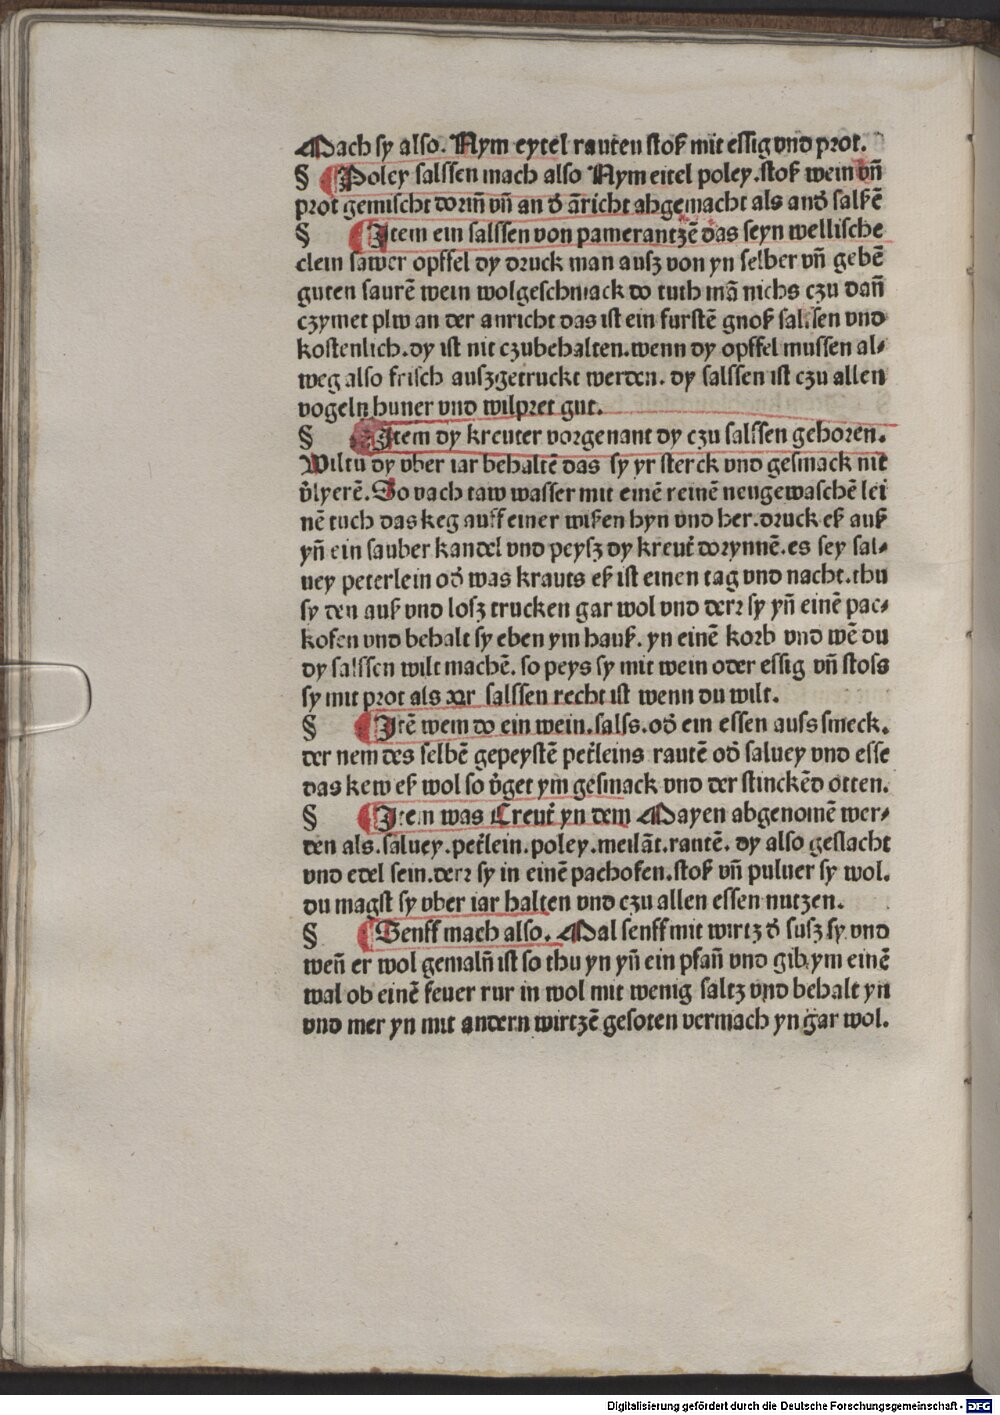 Mach sy also. Nym eytel rauten stoß mit essig vnd prot.
§ Poley salssen mach also Nym eitel poley .stoß wein vn̄
prot gemischt dorin̄ vn̄ an d̕ āricht abgemacht als and̕ salßē
§ Item ein salssen von pamerantzē das seyn wellische
clein sawer opffel dy druck man ausz von yn selber vn̄ gebē
guten saurē wein wolgeschmack do tuth mā nichs czu dan̄
czymet plw an der anricht das ist ein furstē gnoß sal.sen vnd
kostenlich.dy ist nit czubehalten.wenn dy opffel mussen al⸗
weg also frisch auszgetruckt werden. dy salssen ist czu allen
vogeln huner vnd wilpret gut.
§ Item dy kreuter vorgenant dy czu salssen gehoren.
Wiltu dy vber iar behaltē das sy yr sterck vnd gesmack nit
v̕lyerē. So vach taw wasser mit einē reinē neugewaschē lei
nē tuch das keg auff einer wißen hyn vnd her.druck eß auß
yn̄ ein sauber kandel vnd peysz dy kreut̕ dorynnē.es sey sal⸗
uey peterlein od̕ was krauts eß ist einen tag vnd nacht.thu
sy den auß vnd losz trucken gar wol vnd derr sy yn̄ einē pac⸗
kofen vnd behalt sy eben ym hauß. yn einē korb vnd wē du
dy salssen wilt machē. so peys sy mit wein oder essig vn̄ stoss
sy mit prot als salssen recht ist wenn du wilt.
§ Itē wem do ein wein.salss.od̕ ein essen auss smeck.
der nem des selbē gepeystē pet̕leins rautē od̕ saluey vnd esse
das kew eß wol so v̕get ym gesmack vnd der stinckēd otten.
§ Item was Creut̕ yn dem Mayen abgenomē wer⸗
den als.saluey.pet̕lein.poley.meilāt.rantē. dy also geslacht
vnd edel sein.derr sy in einē pachofen.stoß vn̄ puluer sy wol.
du magst sy vber iar halten vnd czu allen essen nutzen.
§ Senff mach also. Mal senff mit wirtz d̕ susz sy vnd
wen̄ er wol gemaln̄ ist so thu yn yn̄ ein pfan̄ vnd gib ym einē
wal ob einē feuer rur in wol mit wenig saltz vnd behalt yn
vnd mer yn mit andern wirtzē gesoten vermach yn gar wol.
Digitalisierung gefördert durch die Deutsche Forschungsgemeinschaft - DFG